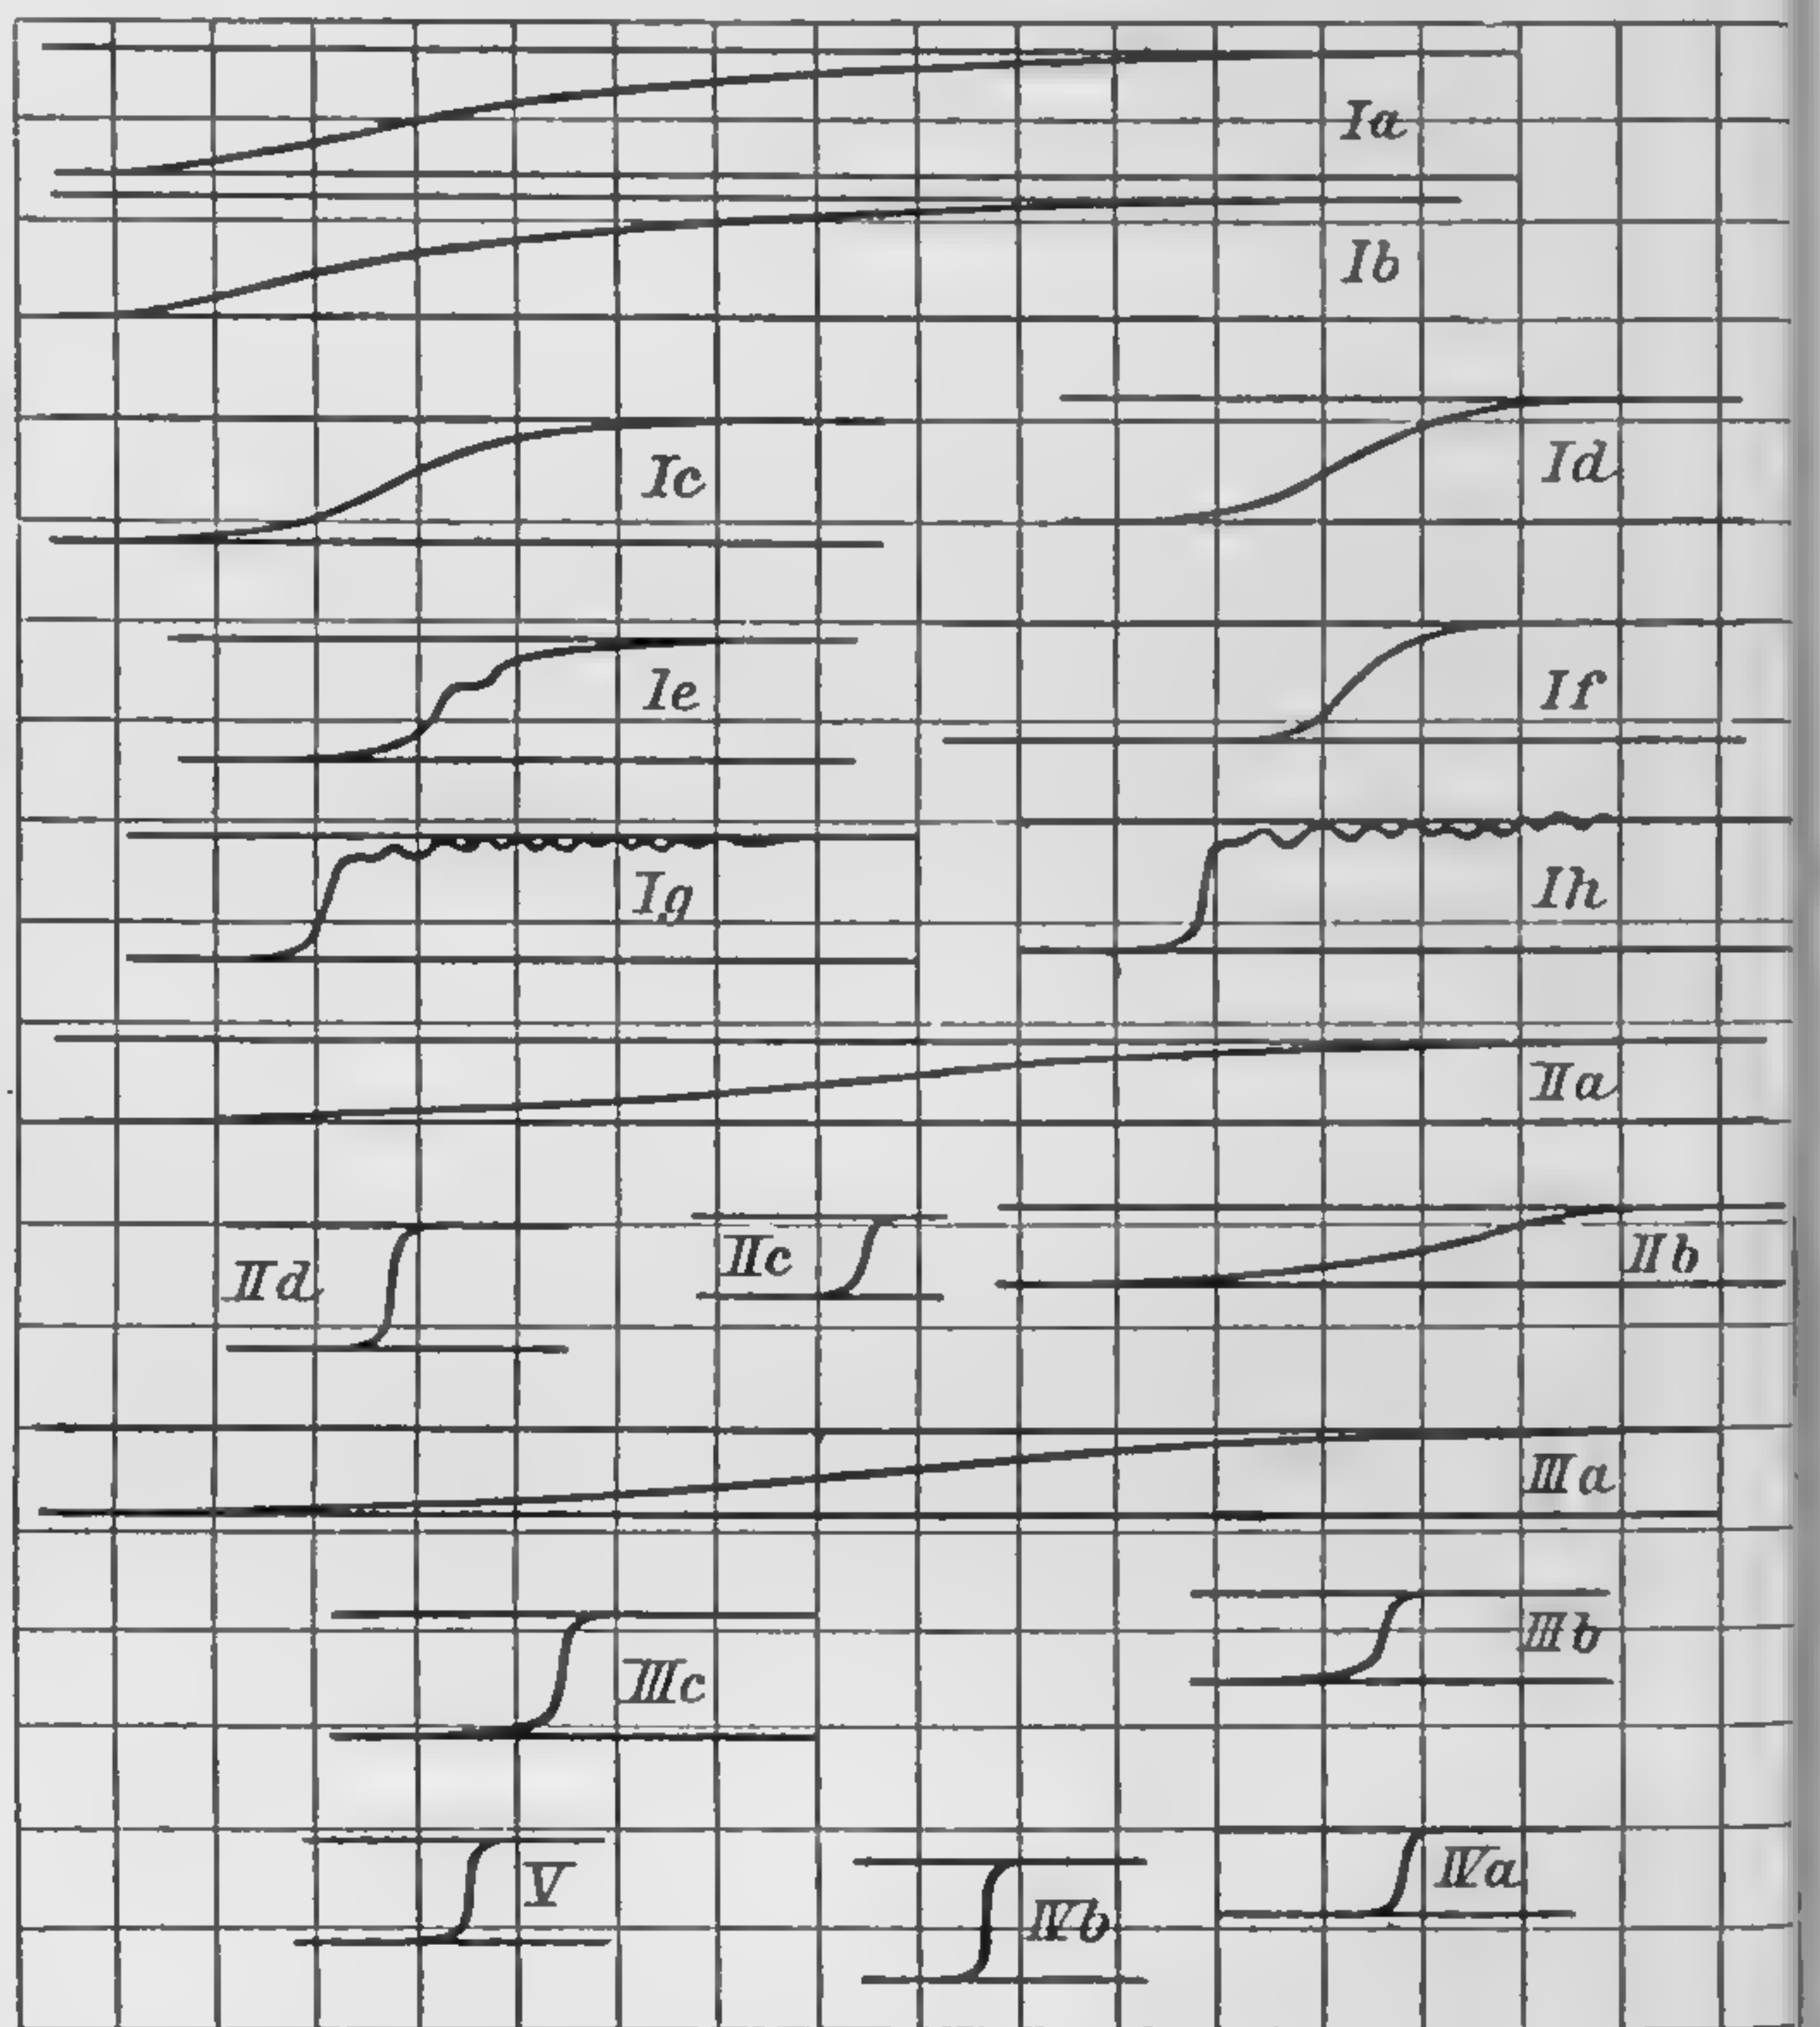 Ia
Ib
Ic
Id
Ie
If
Ig
Ih
IIa
IId
IIc
IIb
IIIa
IIIc
IIIb
V
IVb
IVa